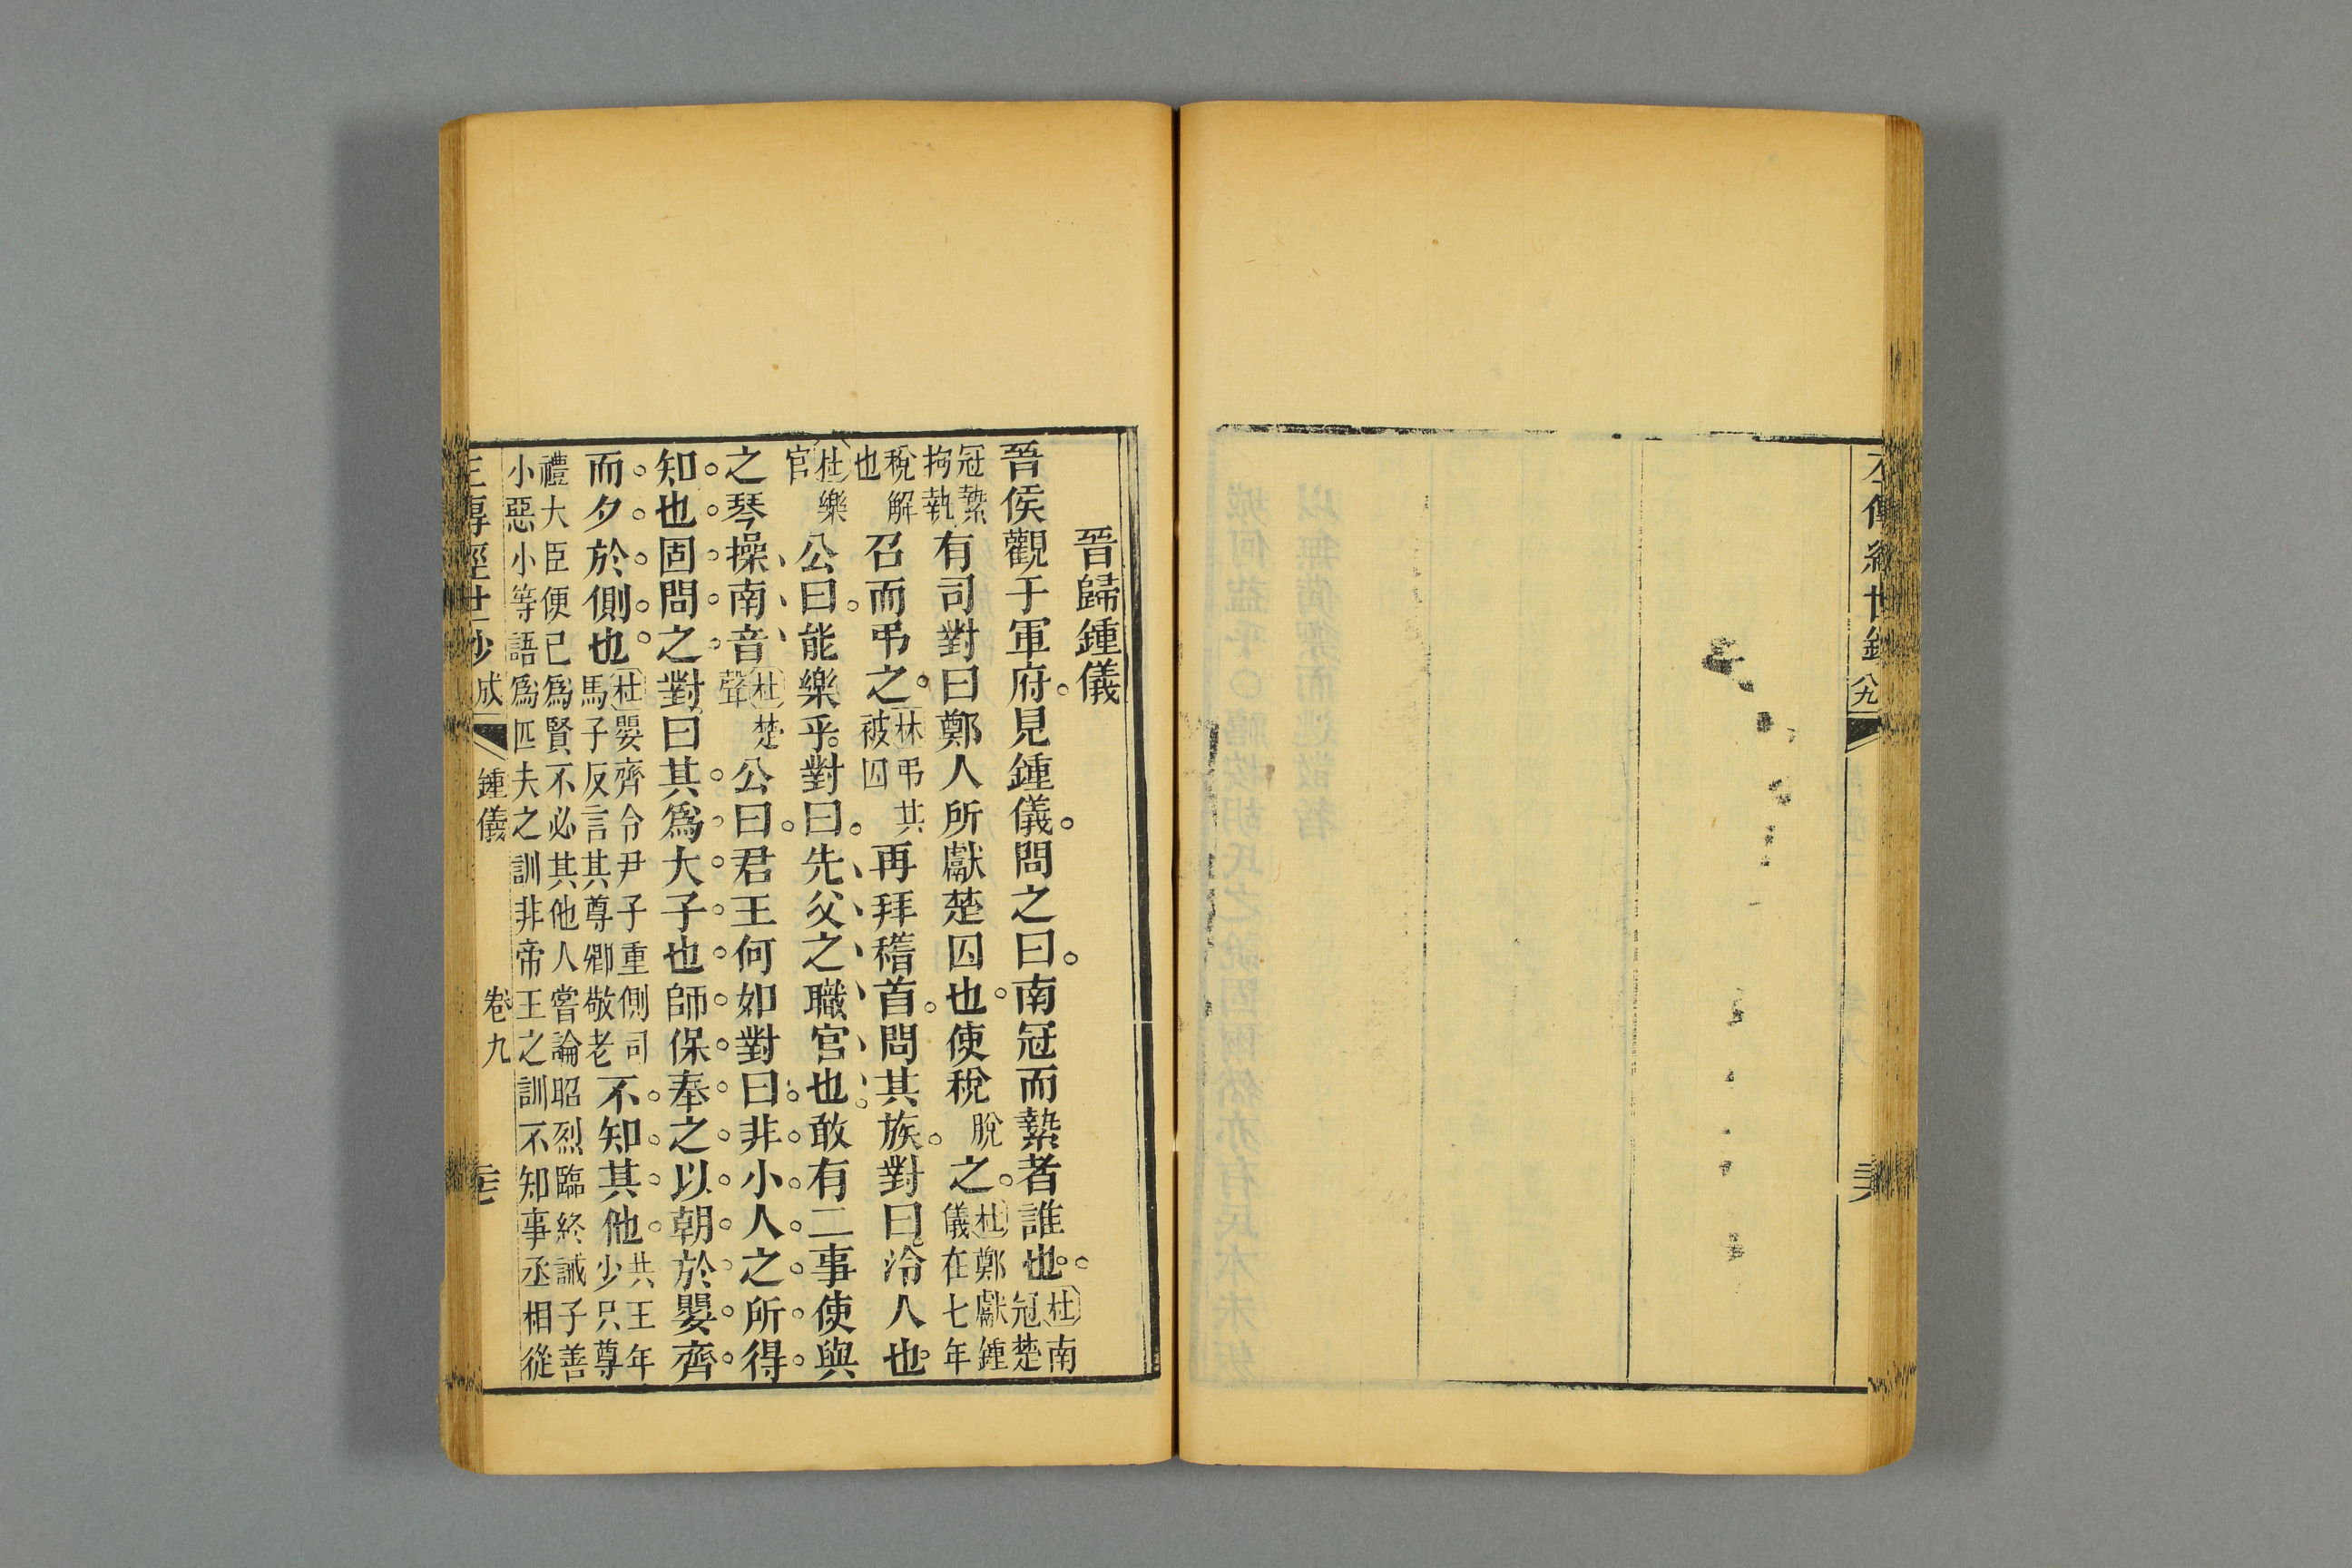 晉歸鍾儀
晉侯觀于軍府見鍾儀問之曰南冠而縶者誰也杜南冠楚
冠縶拘執有司對曰鄭人所獻楚囚也使稅脫之杜鄭獻鍾儀在七年
稅解也召而弔之林弔其被囚再拜稽首問其族對曰泠人也
杜樂官公曰能樂乎對曰先父之職官也敢有二事使與
之琴操南音杜楚聲公曰君王何如對曰非小人之所得
知也固問之對曰其爲大子也師保奉之以朝於嬰齊
而夕於側也杜嬰齊令尹子重側司馬子反言其尊卿敬老不知其他共王年少只尊
禮大臣便已爲賢不必其他人嘗論昭烈臨終誡子善
小惡小等語爲匹夫之訓非帝王之訓不知事丞相從
成 鍾儀 卷九